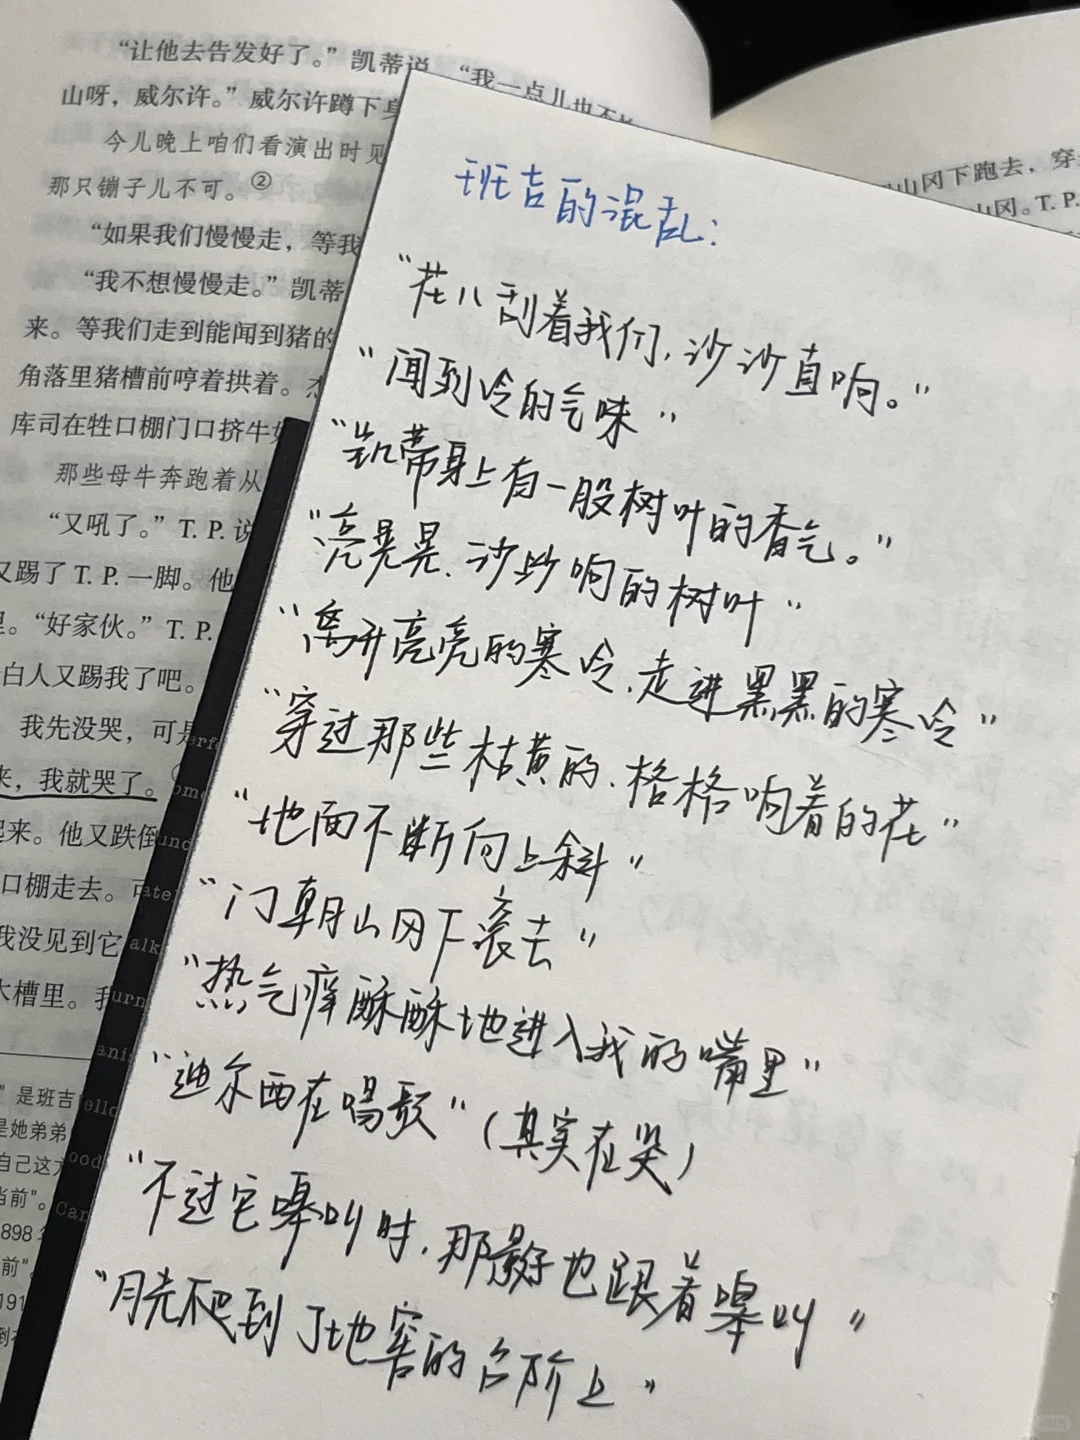 “让他去告发好了。”凯蒂说，“我一点儿也不
山呀，威尔许。”威尔许蹲下身
今儿晚上咱们看演出时见
那只镚子儿不可。②
“如果我们慢慢走，等我
“我不想慢慢走。”凯蒂
来。等我们走到能闻到猪的
角落里猪槽前哼着拱着。
库司在牲口棚门口挤牛奶
那些母牛奔跑着从
“又吼了。”T. P. 说
又踢了 T. P. 一脚。他
里。“好家伙。”T. P.
白人又踢我了吧。
我先没哭，可是
来，我就哭了。
起来。他又跌倒
口棚走去。
我没见到它
木槽里。我
”是班吉
是她弟弟
自己这方
当前”。
898
前”。
191
山冈下跑去，穿
山冈。T. P.
班吉的混乱：
“花儿刮着我们，沙沙直响。”
“闻到冷的气味”
“凯蒂身上有一股树叶的香气。”
“亮晃晃、沙沙响的树叶”
“离开亮亮的寒冷，走进黑黑的寒冷”
“穿过那些枯黄的、格格响着的花”
“地面不断向上斜”
“门朝山冈下滚去”
“热气痒酥酥地进入我的嘴里”
“迪尔西在唱歌”（其实在哭）
“不过它嗥叫时，那影子也跟着嗥叫”
“月光爬到了地窖的台阶上”